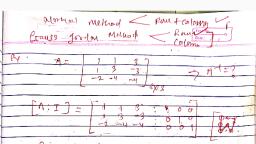 Normal method < Row + column
Gauss Jordan Method < Row
Column
Ex. A = [ 1 1 3
1 3 -3
-2 -4 -4 ] 3x3 ⇒ A⁻¹ = ?
[A : I] = [ 1 1 3 : 1 0 0
1 3 -3 : 0 1 0
-2 -4 -4 : 0 0 1 ]